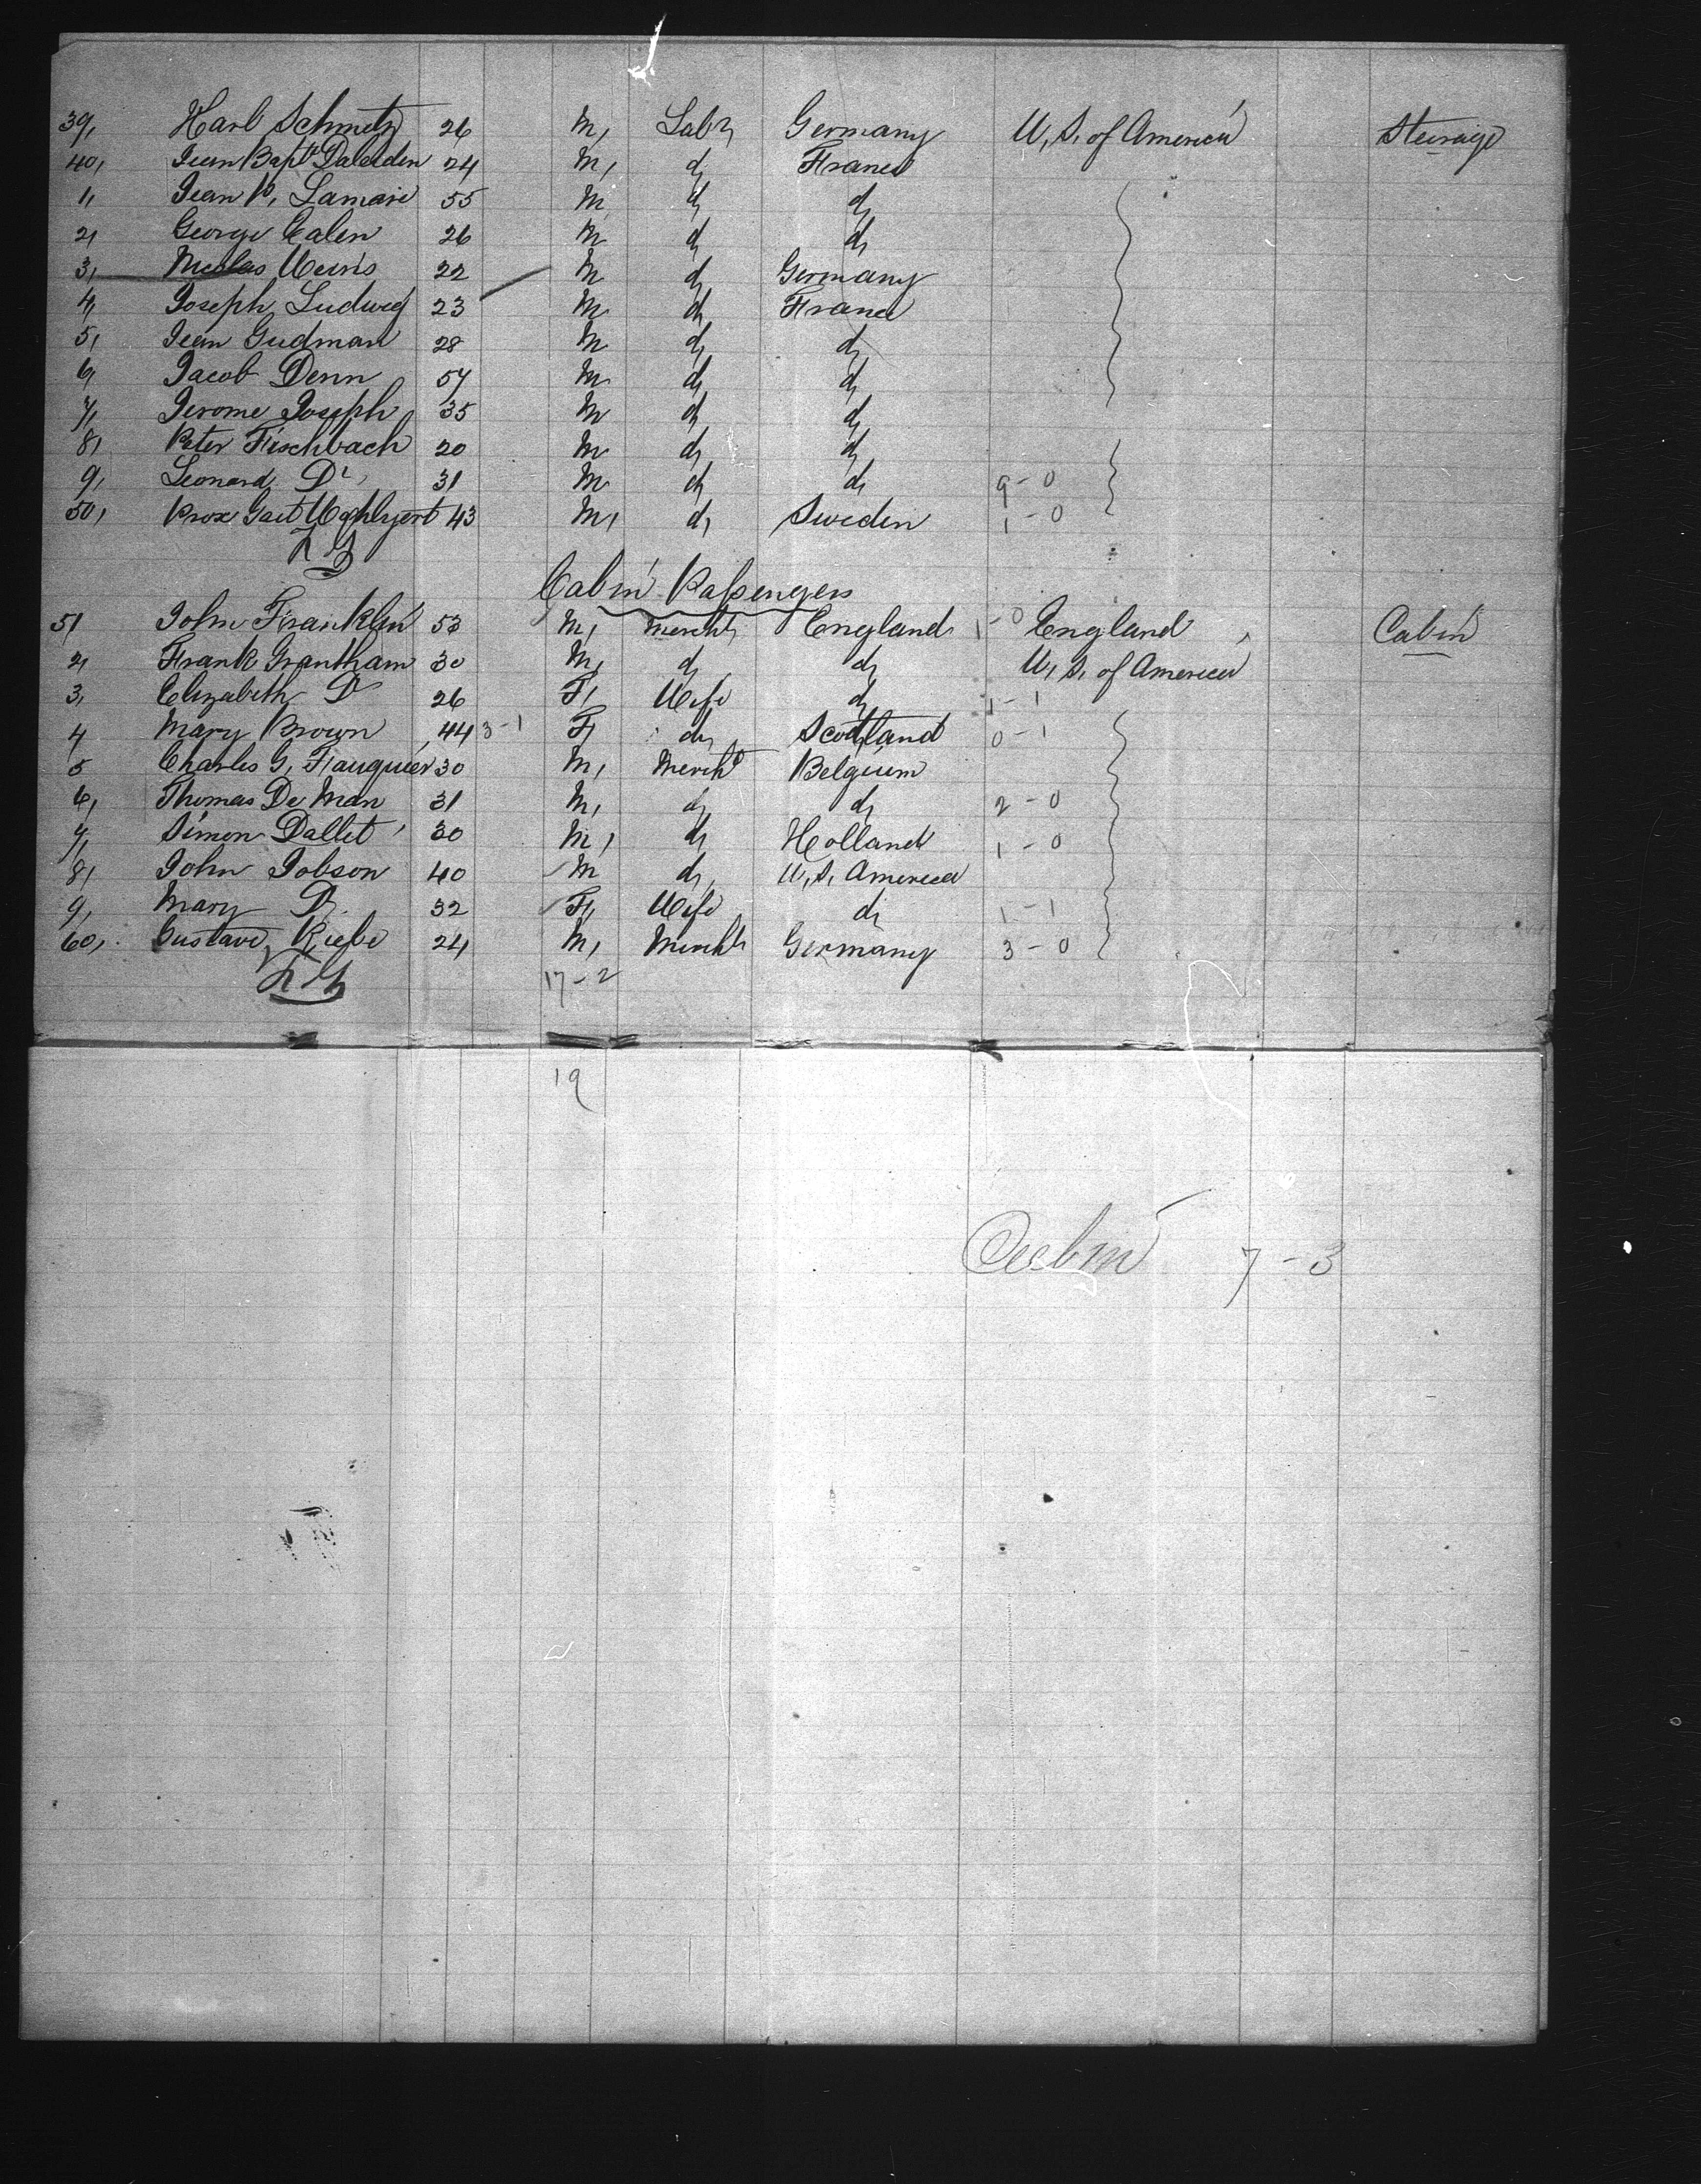 39, Karl Schmetz 26 M, Labr Germany U, S, of America Steerage
40, Jean Bapt Daleiden 24 M, do France
1, Jean P, Lamarie 55 M do do
2, George Calen 26 M do do
3, Nicolas Weiris 22 M do Germany
4, Joseph Ludwig 23 M do France
5, Jean Gudman 28 M do do
6, Jacob Denn 57 M do do
7, Jerome Joseph 35 M do do
8, Peter Fischbach 20 M do do
9, Leonard Do 31 M do do 9-0
50, 43 M, do Sweden 1-0
Cabin Passengers
51 John Franklin 53 M, Mercht England 1-0 England Cabin
2, Frank Grantham 30 M, do do U, S, of America
3, Elizabeth Do 26 F, Wife do 1-1
4 Mary Brown 44 3-1 F, do Scotland 0-1
5 Charles G, Fauquier 30 M, Mercht Belgium
6, Thomas De Man 31 M, do do 2-0
7, Simon Dallet 30 M, do Holland 1-0
8, John Jobson 40 M do U, S, America
9, Mary Do 32 F, Wife do 1-1
60, Gustave Riebe 24 M, Mercht Germany 3-0
17-2
19
Cabin 7-3